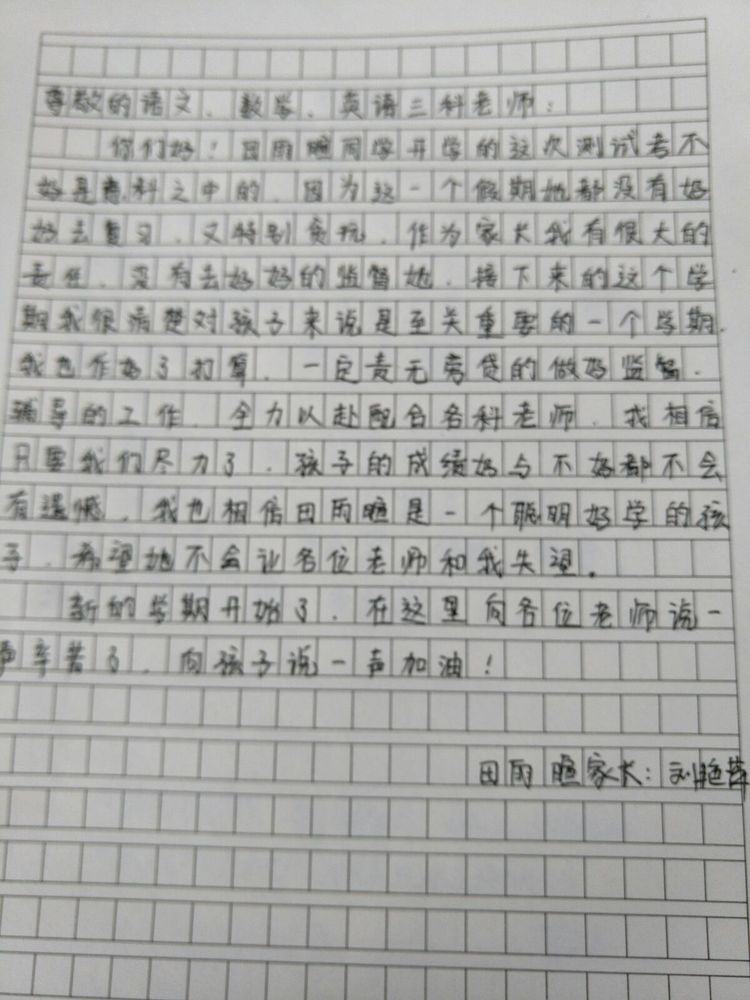 尊敬的语文、数学、英语三科老师:
你们好!田雨暄同学开学的这次测试考不
好是意料之中的.因为这一个假期她都没有好
好去复习.又特别贪玩.作为家长我有很大的
责任.没有去好好的监督她.接下来的这个学
期我很清楚对孩子来说是至关重要的一个学期.
我也作好了打算.一定责无旁贷的做好监督.
辅导的工作.全力以赴配合各科老师.我相信
只要我们尽力了.孩子的成绩好与不好都不会
有遗憾.我也相信田雨暄是一个聪明好学的孩
子.希望她不会让各位老师和我失望。
新的学期开始了.在这里向各位老师说一
声辛苦了.向孩子说一声加油!
田雨暄家长:刘艳萍